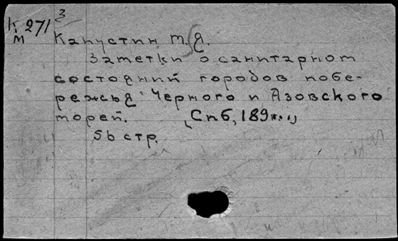 К 271 3
М
Капустин М.Я.
Заметки о санитарном
состоянии городов побе-
режья Черного и Азовского
морей. Спб, 189
56 стр.